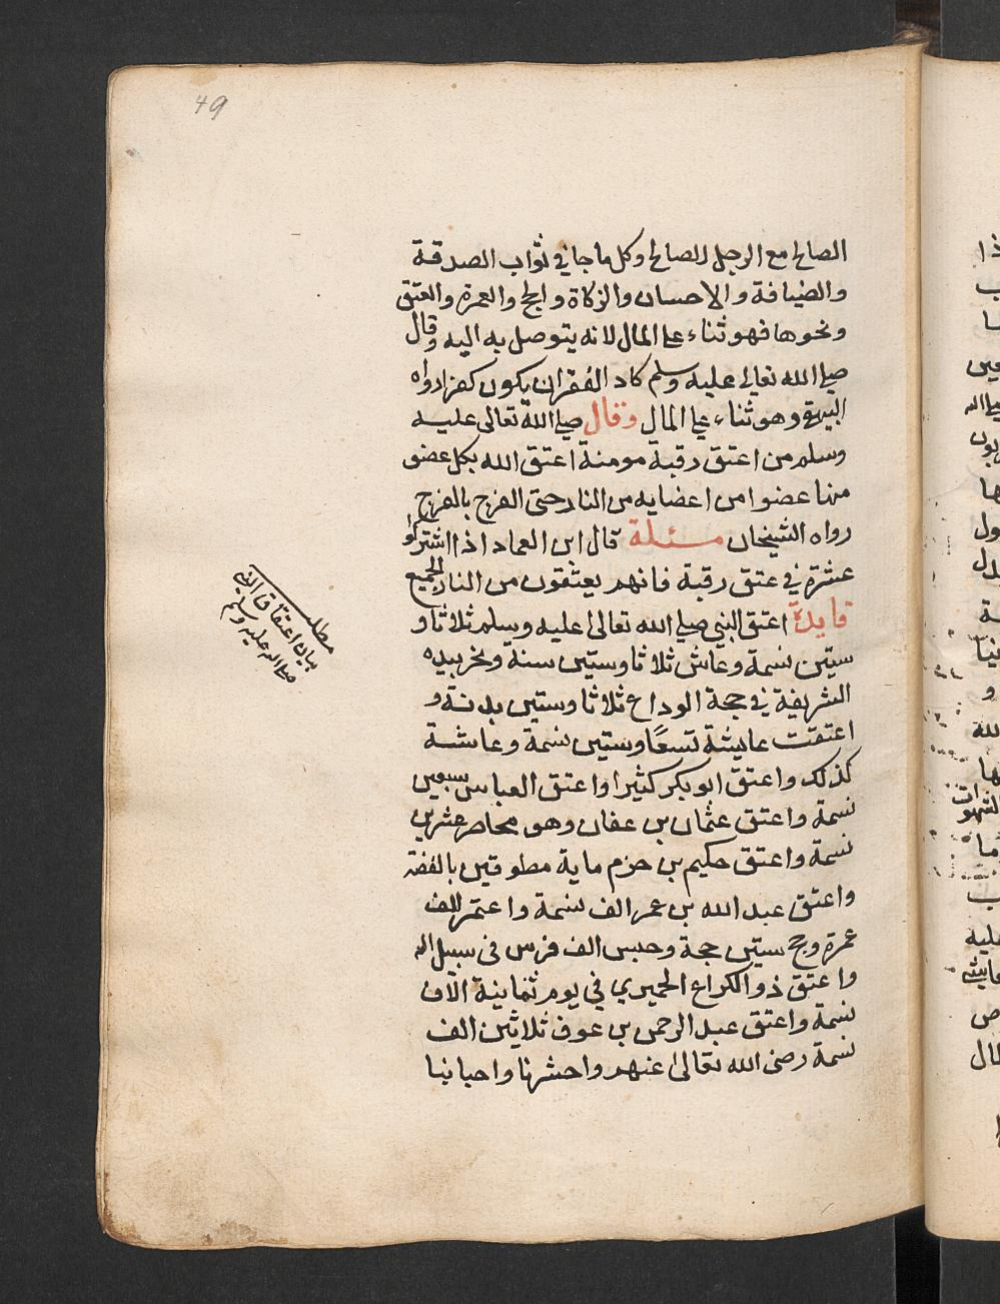 49
الصالح مع الرجل الصالح وكل ما جا في ثواب الصدقة
والضيافة والاحسان والزكاة والحج والعمرة والعتق
ونحوها فهو ثناء على المال لانه يتوصل به اليه وقال
صلى الله تعالى عليه وسلم كاد الفقر ان يكون كفرا رواه
البيهقي وهو ثناء على المال وقال صلى الله تعالى عليه
وسلم من اعتق رقبة مومنة اعتق الله بكل عضو
منها عضوا من اعضايه من النار حتى الفرج بالفرج
رواه الشيخان مسئلة قال ابن العماد اذا اشتركوا
عشرة في عتق رقبة فانهم يعتقون من النار الجميع
فايدة اعتق النبي صلى الله تعالى عليه وسلم ثلاثا و
ستين نسمة وعاش ثلاثا وستين سنة ونحر بيده
الشريفة في حجة الوداع ثلاثا وستين بدنة و
اعتقت عايشة تسعًا وستين نسمة وعاشة
كذلك واعتق ابو بكر كثيرا واعتق العباس سبعين
نسمة واعتق عثمان بن عفان وهو محاصر عشرين
نسمة واعتق حكيم بن حزم ماية مطوقين بالفضة
واعتق عبد الله بن عمر الف نسمة واعتمر الف
عمرة وحج ستين حجة وحبس الف فرس في سبيل الله
واعتق ذو الكراع الحميري في يوم ثمانية الاف
نسمة واعتق عبد الرحمن بن عوف ثلاثين الف
نسمة رضى الله تعالى عنهم واحشرنا واحبابنا
مطلب
بيان اعتقاق النبي
صلى الله عليه وسلم